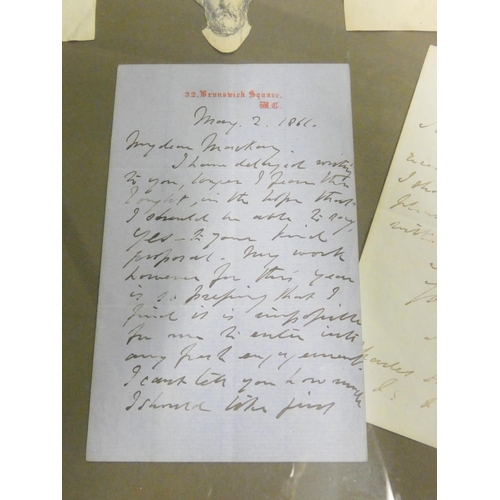 32. Brunswick Square.
W.C.
May. 2. 1861.
My dear Mackay.
I have delayed writing
to you, longer I fear than
I ought, in the hope that
I should be able to say
yes – to your kind
proposal. My work
however for this year
is so pressing that I
find it is impossible
for me to enter into
any fresh engagement.
I cant tell you how much
I should like